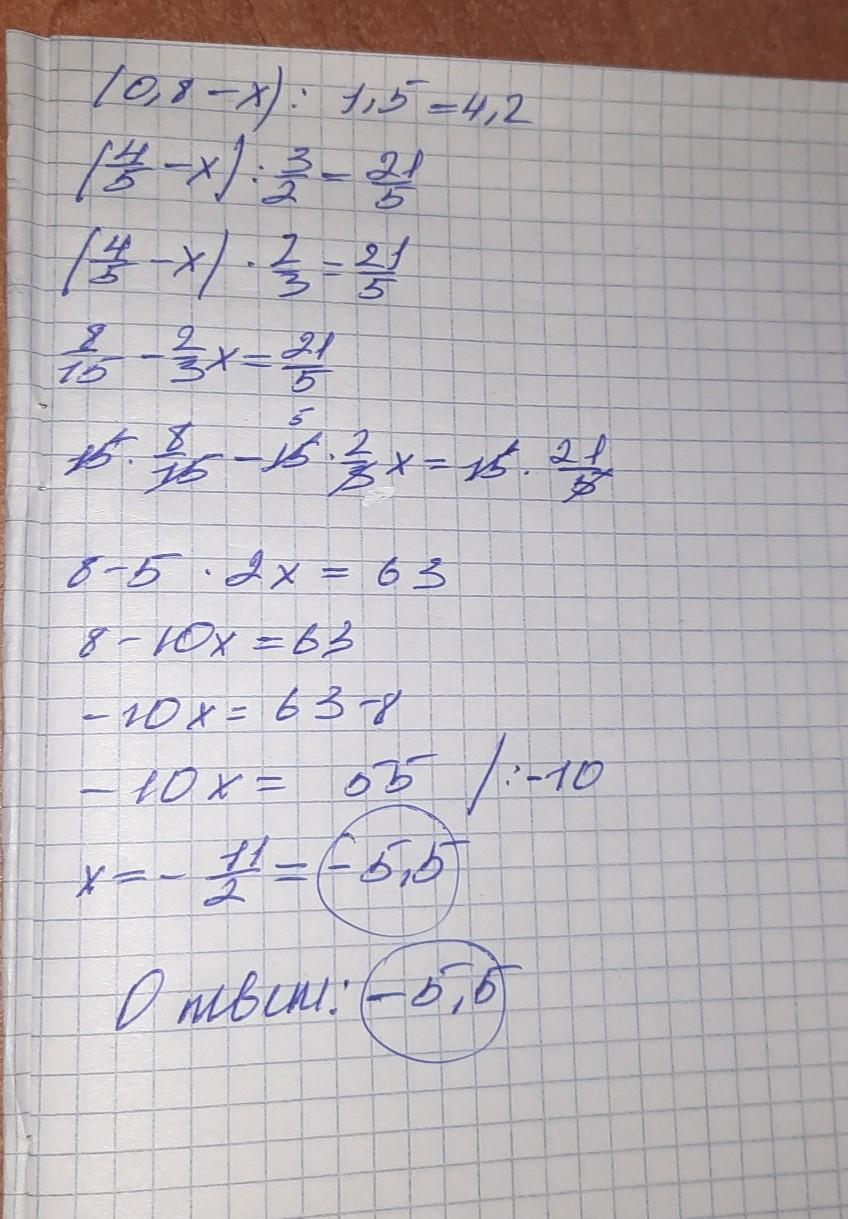 (0,8 - x) : 1,5 = 4,2
(4/5 - x) : 3/2 = 21/5
(4/5 - x) · 2/3 = 21/5
8/15 - 2/3 x = 21/5
5
15 · 8/15 - 15 · 2/3 x = 15 · 21/5
8 - 5 · 2x = 63
8 - 10x = 63
- 10x = 63 - 8
- 10x = 55 / : -10
x = - 11/2 = -5,5
Ответ: -5,5